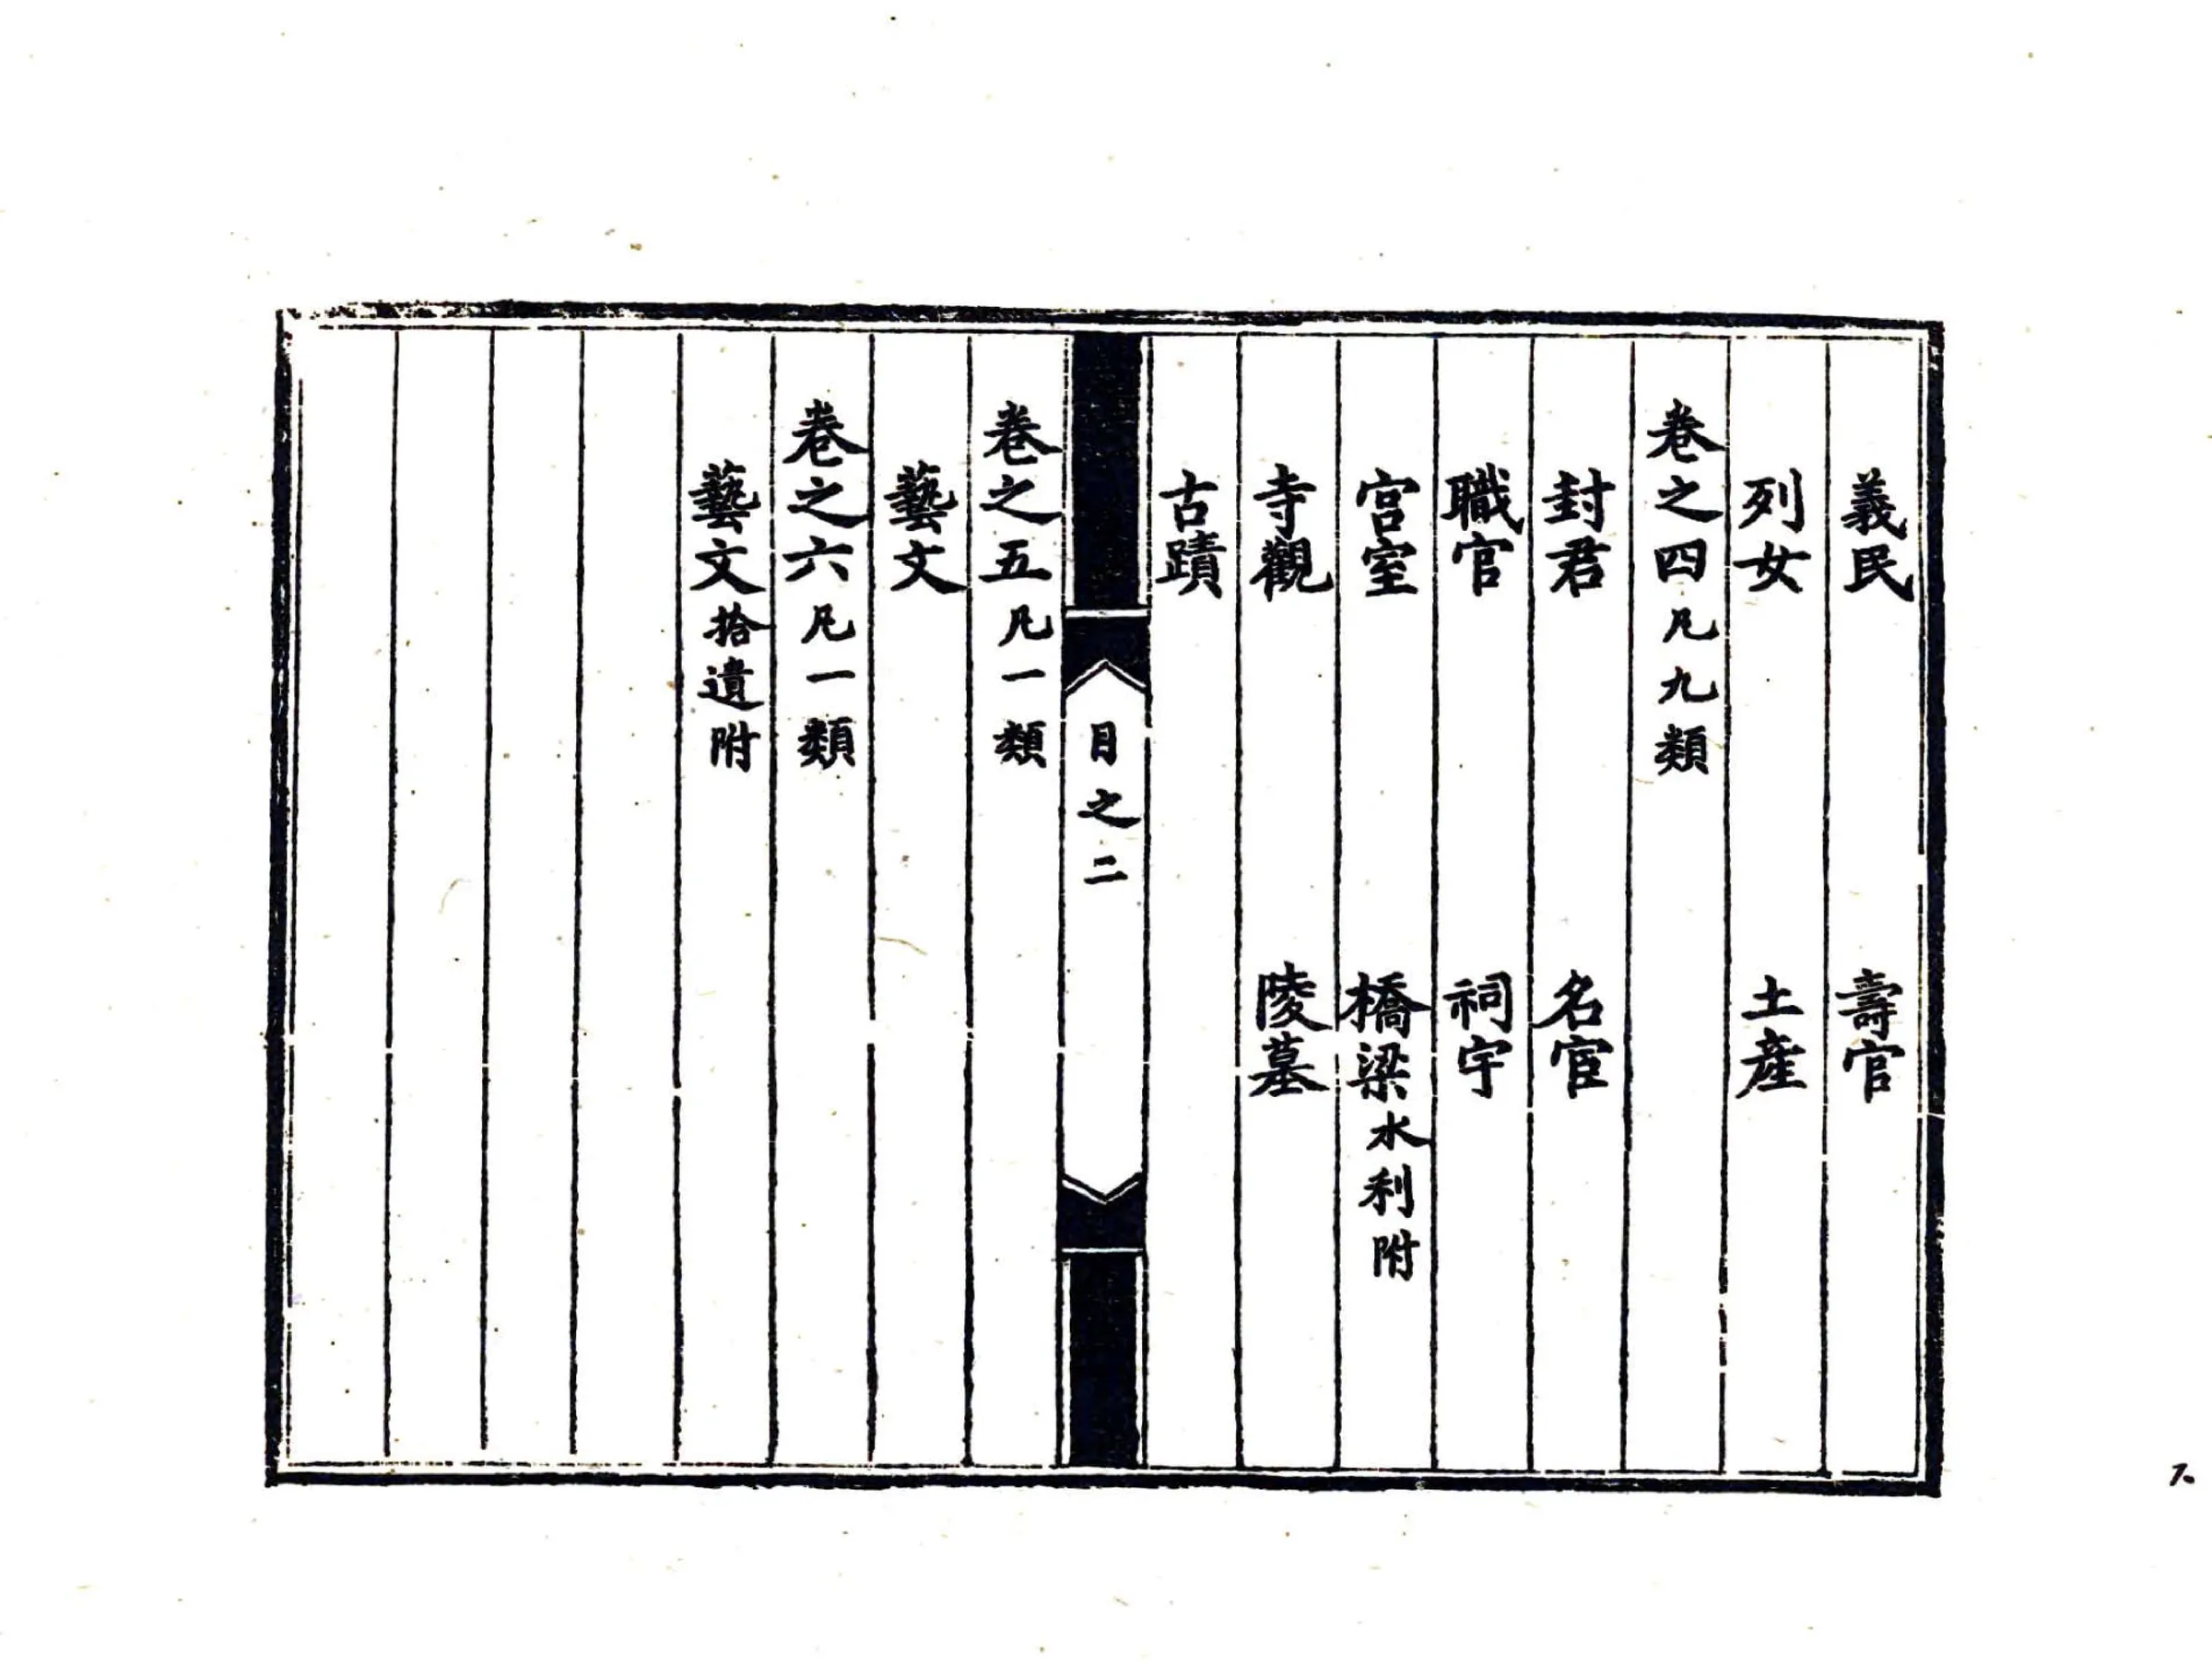 義民 壽官
列女 土產
卷之四凡九類
封君 名宦
職官 祠宇
宮室 橋梁水利附
寺觀 陵墓
古蹟
目之二
卷之五凡一類
藝文
卷之六凡一類
藝文拾遺附